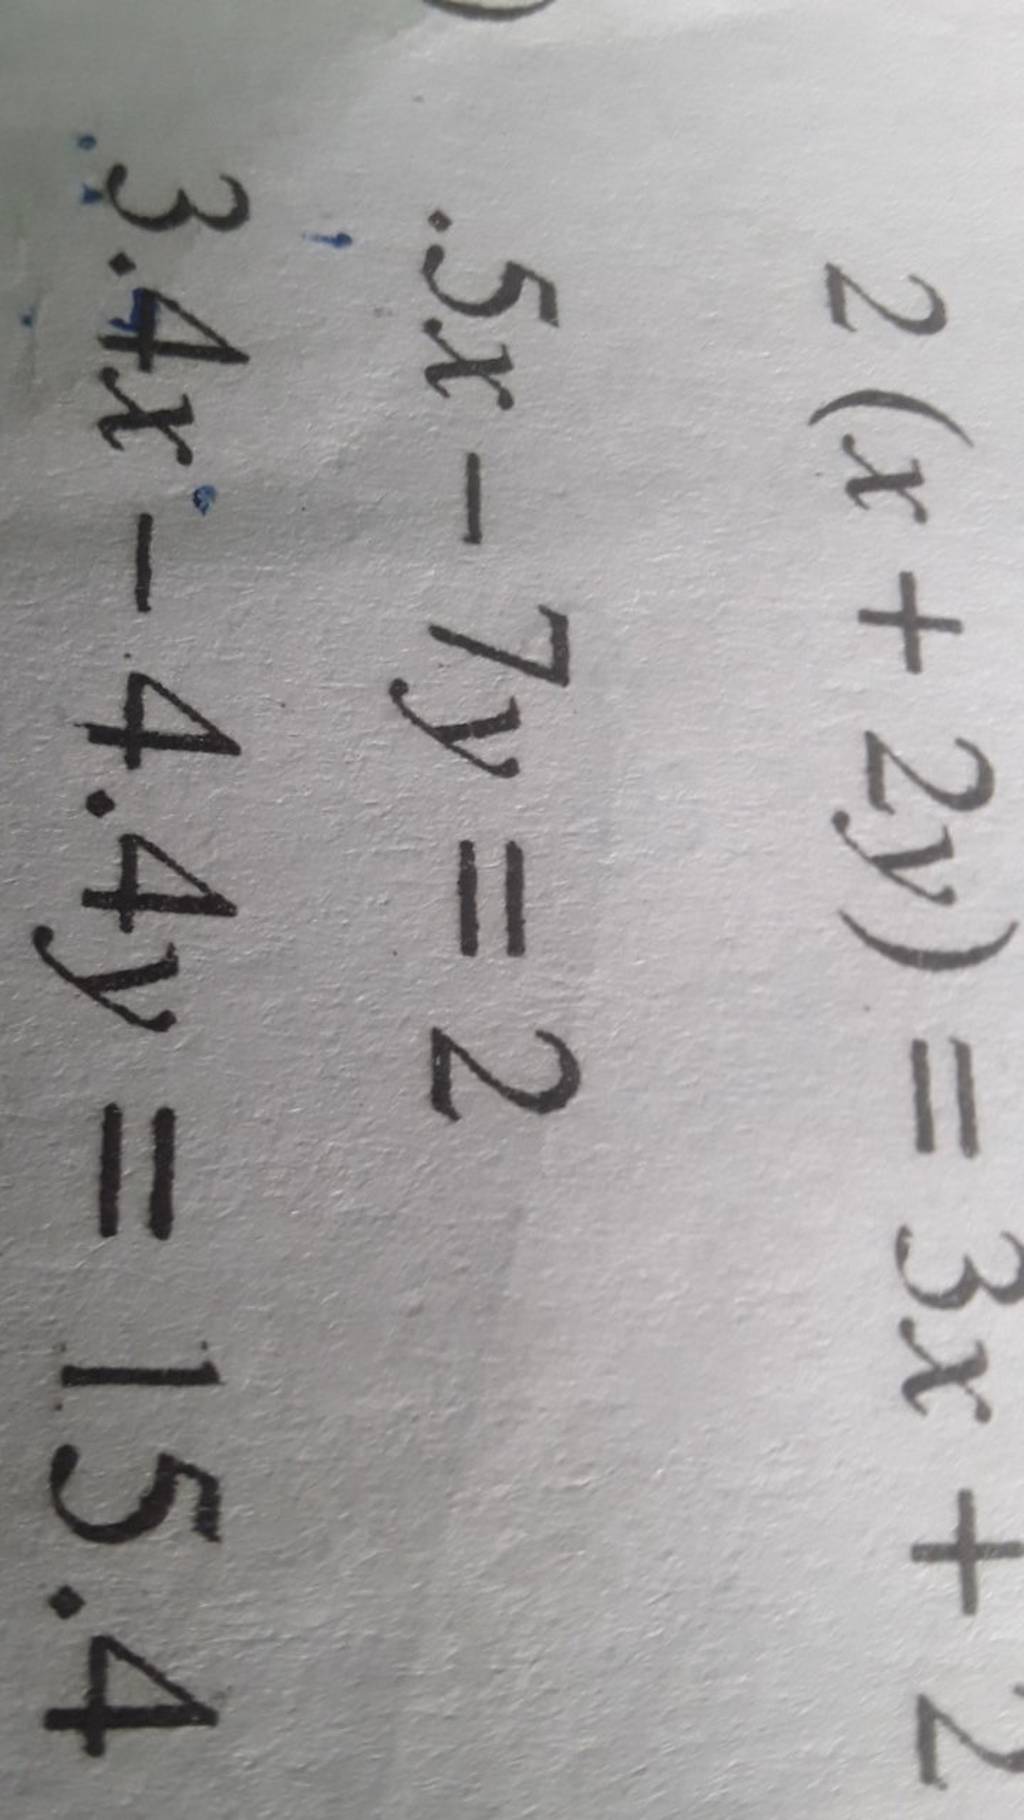 2(x + 2y) = 3x + 2
.5x - 7y = 2
3.4x - 4.4y = 15.4